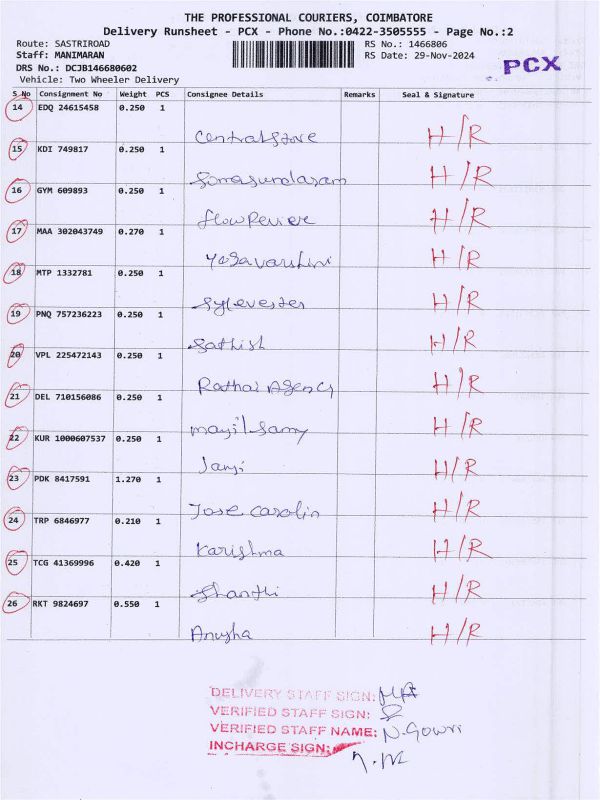 THE PROFESSIONAL COURIERS, COIMBATORE
Delivery Runsheet - PCX - Phone No.:0422-3505555 - Page No.:2
Route: SASTRIROAD RS No.: 1466806
Staff: MANIMARAN RS Date: 29-Nov-2024
DRS No.: DCJB146680602
PCX
Vehicle: Two Wheeler Delivery
S No Consignment No Weight PCS Consignee Details Remarks Seal & Signature
14 EDQ 24615458 0.250 1
Centralstore H/R
15 KDI 749817 0.250 1
Somasundaram H/R
16 GYM 609893 0.250 1
H/R
17 MAA 302043749 0.270 1
Yogavarshini H/R
18 MTP 1332781 0.250 1
Sylevester H/R
19 PNQ 757236223 0.250 1
Sathish H/R
20 VPL 225472143 0.250 1
Rathai Agency H/R
21 DEL 710156086 0.250 1
mayilsamy H/R
22 KUR 1000607537 0.250 1
H/R
23 PDK 8417591 1.270 1
Jose Carolin H/R
24 TRP 6846977 0.210 1
Karishma H/R
25 TCG 41369996 0.420 1
Shanthi H/R
26 RKT 9824697 0.550 1
Anusha H/R
DELIVERY STAFF SIGN:
VERIFIED STAFF SIGN:
VERIFIED STAFF NAME: N.Gowri
INCHARGE SIGN: